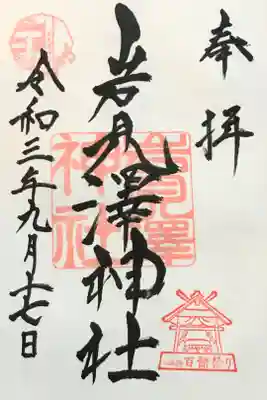 奉拝
岩見澤神社
令和三年九月十七日
岩見澤神社
百餅祭り